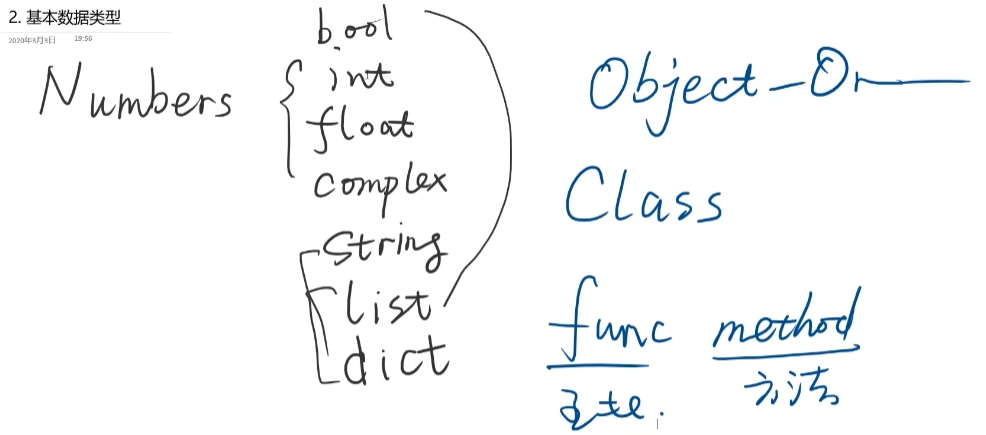 2. 基本数据类型
2020年3月3日 19:56
Numbers
bool
int
float
complex
String
list
dict
Object-Or
Class
func method
方法